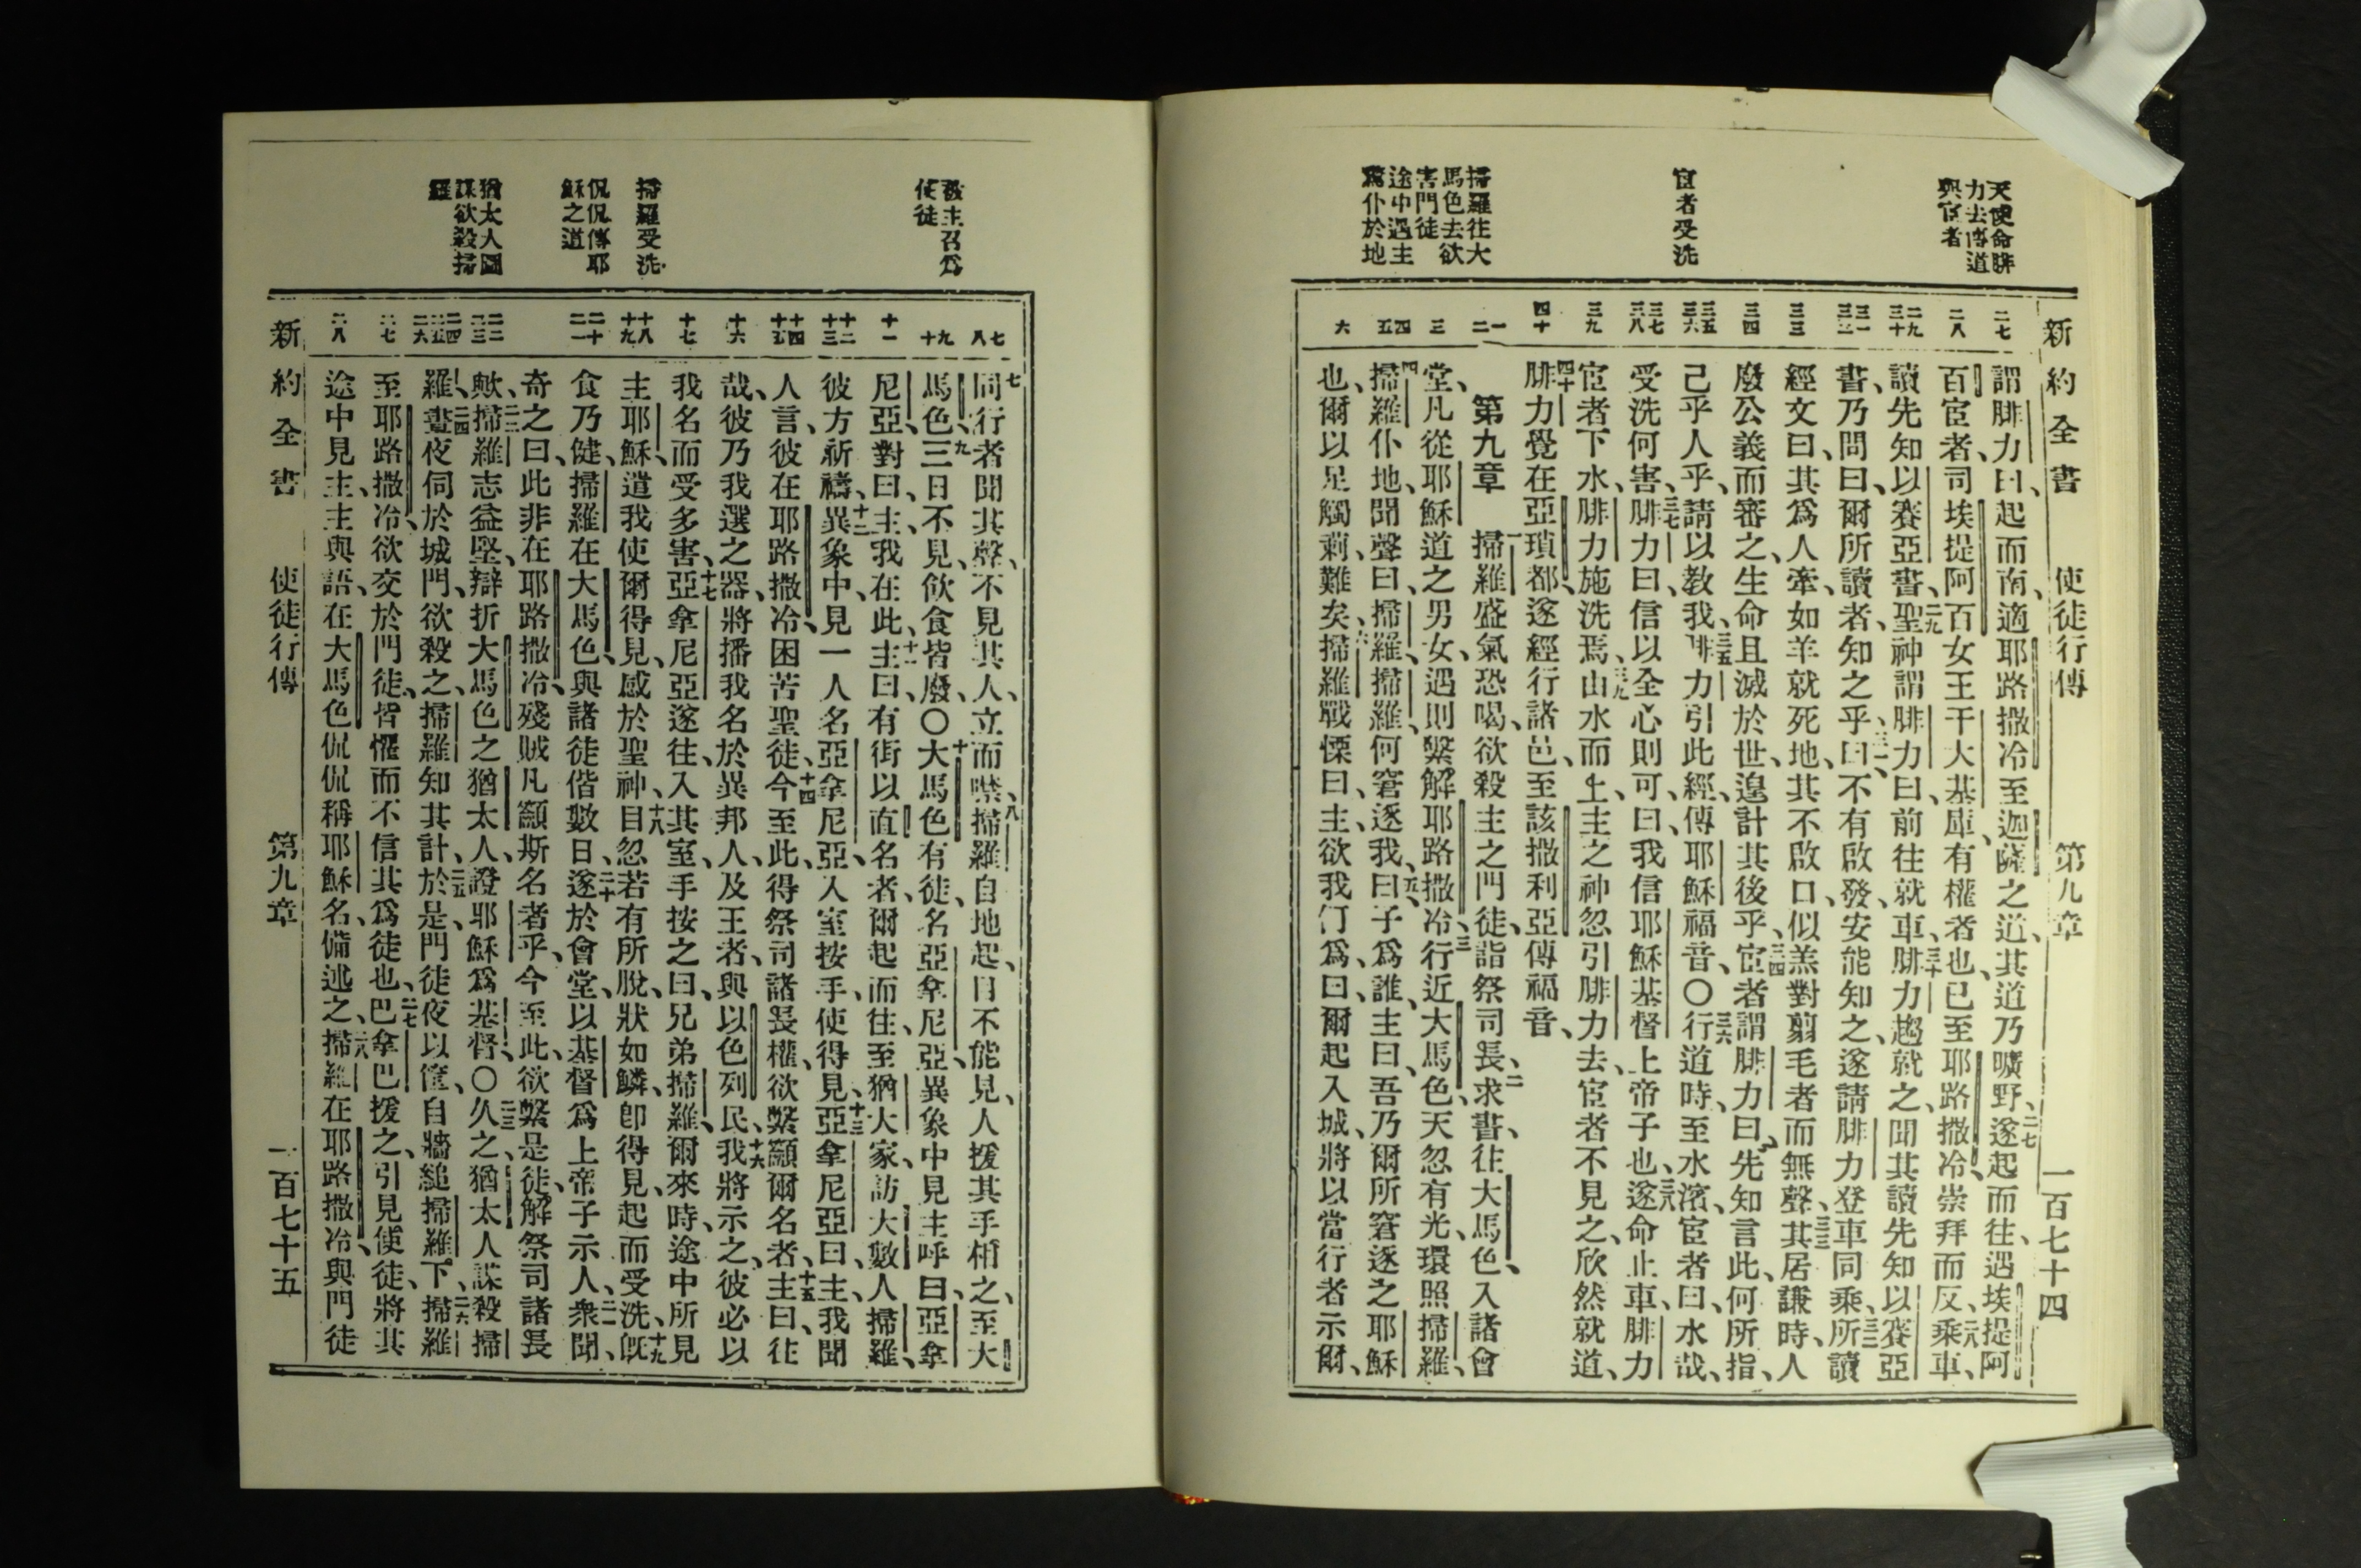 新約全書 使徒行傳 第九章 一百七十四
天使命腓
力去傳道
與宦者
宦者受洗
掃羅往大
馬色去欲
害門徒
途中遇主
驚仆於地
二七
二八
二九 三十
三一 三二
三三
三四
三五 三六
三七 三八
三九
四十
一 二
三
四 五
六
謂腓力曰、起而南、適耶路撒冷至迦薩之道、其道乃曠野、二七遂起而往、遇埃提阿
百宦者、司埃提阿百女王干大基庫、有權者也、已至耶路撒冷崇拜而反、二八乘車、
讀先知以賽亞書、二九聖神謂腓力曰、前往就車、三十腓力趨就之、聞其讀先知以賽亞
書、乃問曰、爾所讀者、知之乎、三一曰、不有啟發、安能知之、遂請腓力登車同乘、三二所讀
經文曰、其爲人牽、如羊就死地、其不啟口、似羔對翦毛者而無聲、三三其居謙時、人
廢公義而審之、生命且滅於世、遑計其後乎、三四宦者謂腓力曰、先知言此、何所指、
己乎人乎、請以教我、三五腓力引此經、傳耶穌福音、〇三六行道時、至水濱、宦者曰、水哉、
受洗何害、三七腓力曰、信以全心則可、曰、我信耶穌基督上帝子也、三八遂命止車、腓力
宦者下水、腓力施洗焉、三九由水而上、主之神忽引腓力去、宦者不見之、欣然就道、
四十腓力覺在亞瑣都、遂經行諸邑、至該撒利亞傳福音、
第九章 一掃羅盛氣恐喝、欲殺主之門徒、詣祭司長、二求書、往大馬色、入諸會
堂、凡從耶穌道之男女、遇則繫解耶路撒冷、三行近大馬色、天忽有光、環照掃羅、
四掃羅仆地、聞聲曰、掃羅、掃羅、何窘逐我、五曰、子爲誰、主曰、吾乃爾所窘逐之耶穌
也、爾以足觸剌、難矣、六掃羅戰慄曰、主、欲我何爲、曰、爾起入城、將以當行者示爾、
被主召爲
使徒
掃羅受洗
侃侃傳耶
穌之道
猶太人圖
謀欲殺掃
羅
七 八
九 十
十一
十二 十三
十四 十五
十六
十七
十八 十九
二十 二一
二二 二三
二四 二五 二六
二七
二八
七同行者聞其聲、不見其人、立而噤、八掃羅自地起、目不能見、人援其手相之、至大
馬色、九三日不見、飲食皆廢、〇十大馬色有徒、名亞拿尼亞、異象中見主呼曰、亞拿
尼亞、對曰、主、我在此、十一主曰、有街以直名者、爾起而往、至猶大家、訪大數人掃羅、
彼方祈禱、十二異象中、見一人名亞拿尼亞、入室按手、使得見、十三亞拿尼亞曰、主、我聞
人言、彼在耶路撒冷、困苦聖徒、十四今至此、得祭司諸長權、欲繫籲爾名者、十五主曰、往
哉、彼乃我選之器、將播我名於異邦人、及王者、與以色列民、十六我將示之、彼必以
我名而受多害、十七亞拿尼亞遂往、入其室、手按之曰、兄弟掃羅、爾來時、途中所見
主耶穌、遣我使爾得見、感於聖神、十八目忽若有所脫、狀如鱗、卽得見、起而受洗、十九旣
食乃健、掃羅在大馬色、與諸徒偕數日、二十遂於會堂、以基督爲上帝子示人、二一衆聞、
奇之曰、此非在耶路撒冷、殘賊凡籲斯名者乎、今至此、欲繫是徒、解祭司諸長
歟、二二掃羅志益堅、辯折大馬色之猶太人、證耶穌爲基督、〇二三久之、猶太人謀殺掃
羅、二四晝夜伺於城門、欲殺之、掃羅知其計、二五於是門徒夜以筐、自牆縋掃羅下、二六掃羅
至耶路撒冷、欲交於門徒、皆懼而不信其爲徒也、二七巴拿巴援之、引見使徒、將其
途中見主、主與語、在大馬色侃侃稱耶穌名、備述之、二八掃羅在耶路撒冷、與門徒
新約全書 使徒行傳 第九章 一百七十五